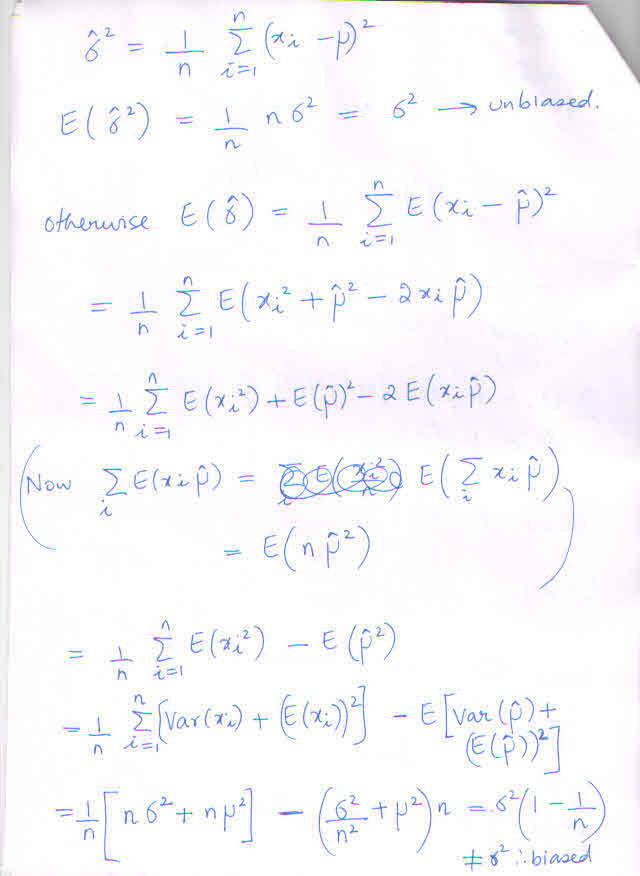 σ̂² = 1/n Σ_{i=1}^{n} (xi − μ)²
E(σ̂²) = 1/n nσ² = σ² → unbiased.
otherwise E(σ̂) = 1/n Σ_{i=1}^{n} E(xi − μ̂)²
= 1/n Σ_{i=1}^{n} E(xi² + μ̂² − 2xi μ̂)
= 1/n Σ_{i=1}^{n} E(xi²) + E(μ̂)² − 2E(xi μ̂)
(Now Σ_i E(xi μ̂) = E(Σ_i xi μ̂)
= E(n μ̂²))
= 1/n Σ_{i=1}^{n} E(xi²) − E(μ̂²)
= 1/n Σ_{i=1}^{n} [Var(xi) + (E(xi))²] − E[Var(μ̂) + (E(μ̂))²]
= 1/n [nσ² + nμ²] − (σ²/n² + μ²)n = σ²(1 − 1/n)
≠ σ² ∴ biased